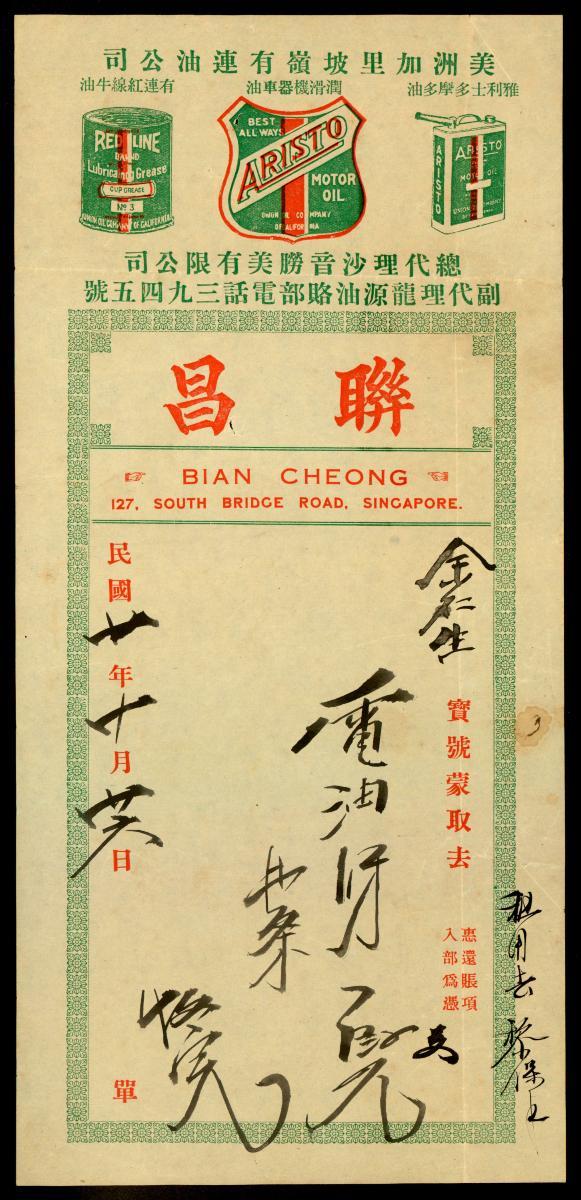 美洲加里坡嶺有連油公司
雅利士多摩多油
潤滑機器車油
有連紅線牛油
BEST
ALL WAYS
ARISTO
MOTOR
OIL
UNION OIL COMPANY
OF CALIFORNIA
RED LINE
BRAND
Lubricating Grease
CUP GREASE
Nº 3
UNION OIL COMPANY OF CALIFORNIA
ARISTO
ARISTO
MOTOR OIL
總代理沙音勝美有限公司
副代理龍源油賂部電話三九四五號
聯昌
BIAN CHEONG
127, SOUTH BRIDGE ROAD, SINGAPORE.
余仁生
寶號蒙取去
惠還賬項
入部爲憑
電油
單
民國廿年十月廿六日